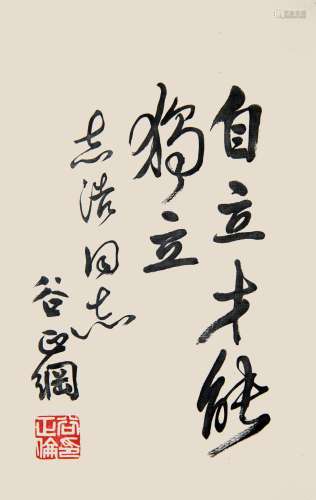 自立才能
獨立
志浩同志
谷正綱